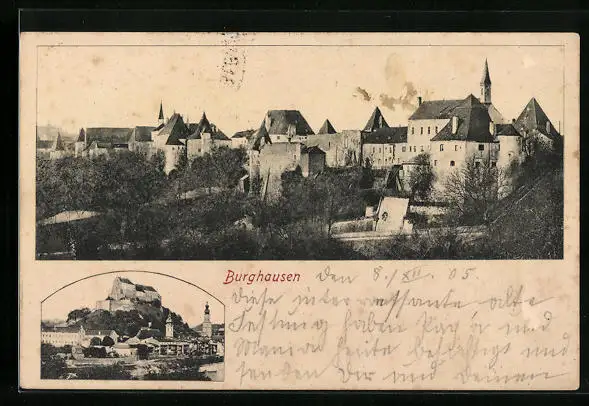 Burghausen den 8./XII. 05.
diese interressante alte
Festung haben Papa und
Mama heute besichtigt und
senden Dir und Deinen